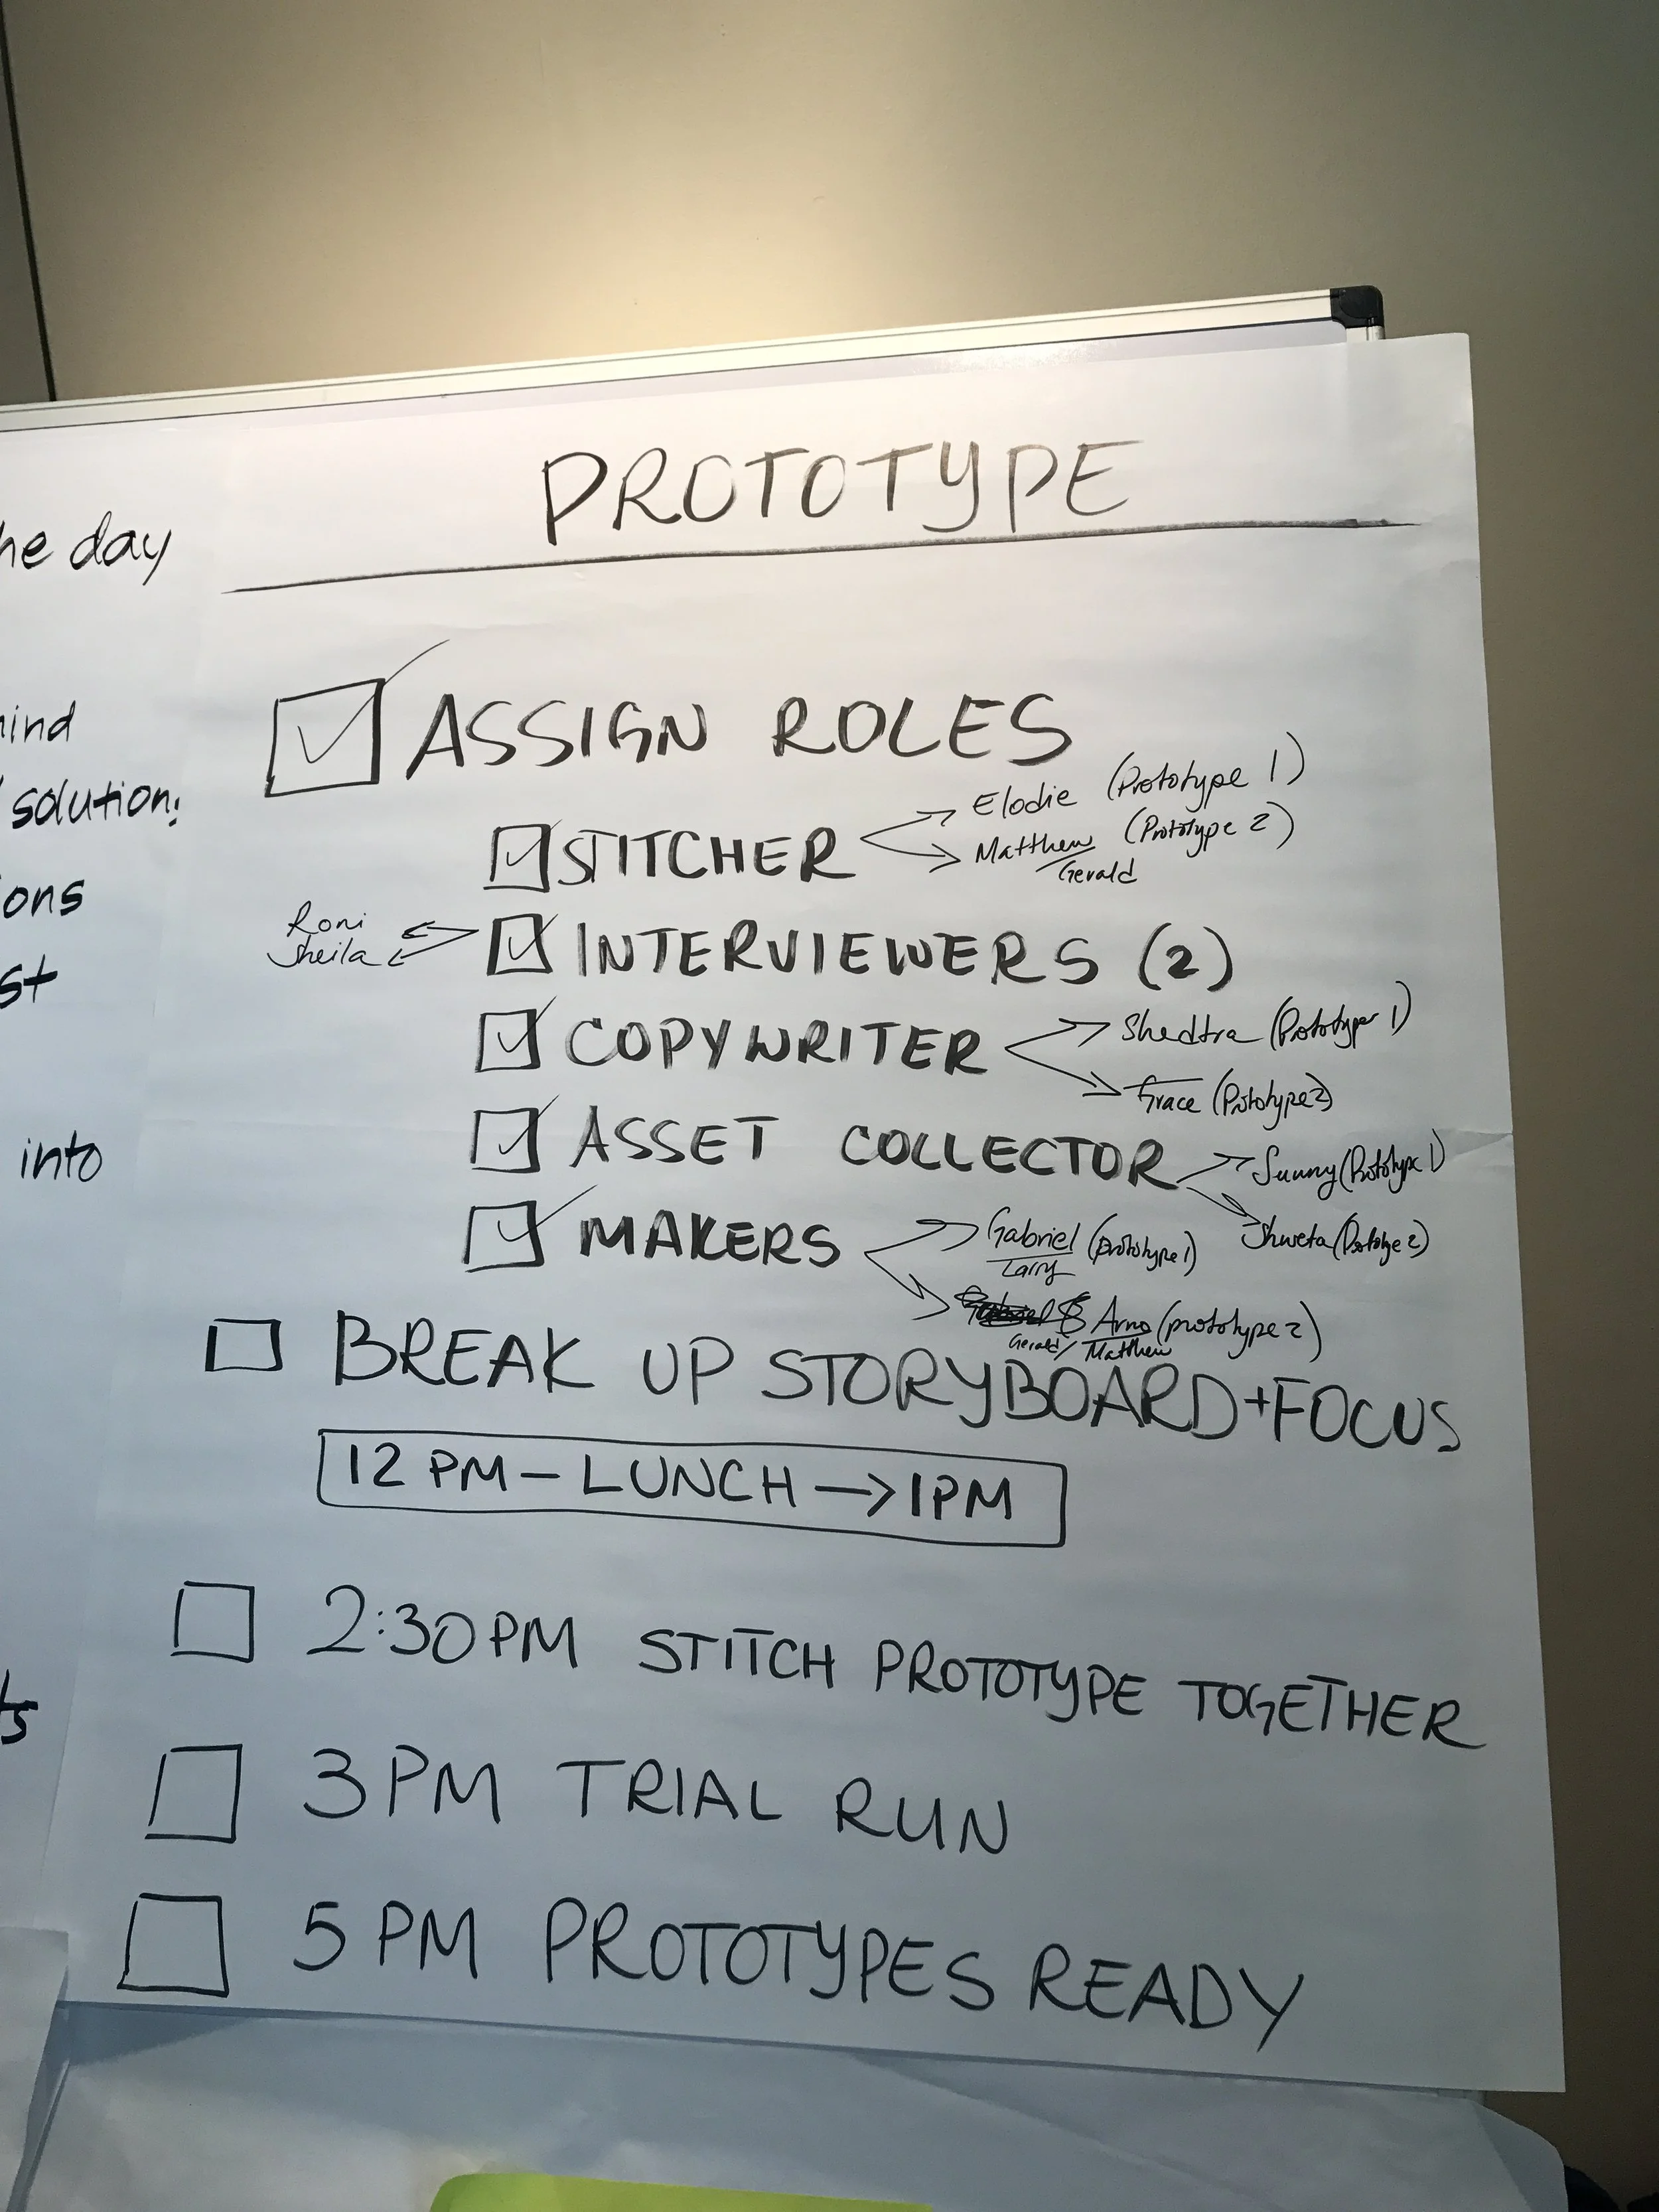 PROTOTYPE
he day
ASSIGN ROLES
ind
solution:
STITCHER
Elodie (Prototype 1)
Matthew (Prototype 2)
Gerald
ons
Roni
Sheila
INTERVIEWERS (2)
st
COPYWRITER
(Prototype 1)
Grace (Prototype 2)
ASSET COLLECTOR
Sunny (Prototype 1)
Shweta (Prototype 2)
into
MAKERS
Gabriel (prototype 1)
Larry
& Arno (prototype 2)
Gerald/Matthew
BREAK UP STORYBOARD+FOCUS
12 PM – LUNCH → 1PM
2:30PM STITCH PROTOTYPE TOGETHER
ts
3PM TRIAL RUN
5PM PROTOTYPES READY